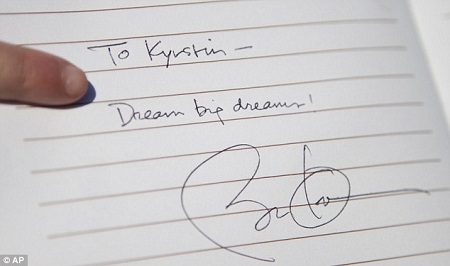 To Kyrstin –
Dream big dreams!
© AP